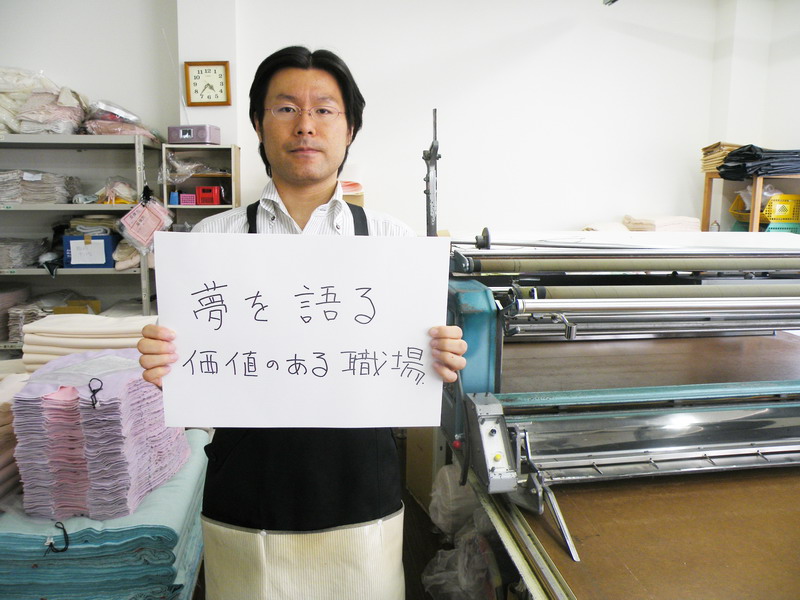 夢を語る
価値のある職場